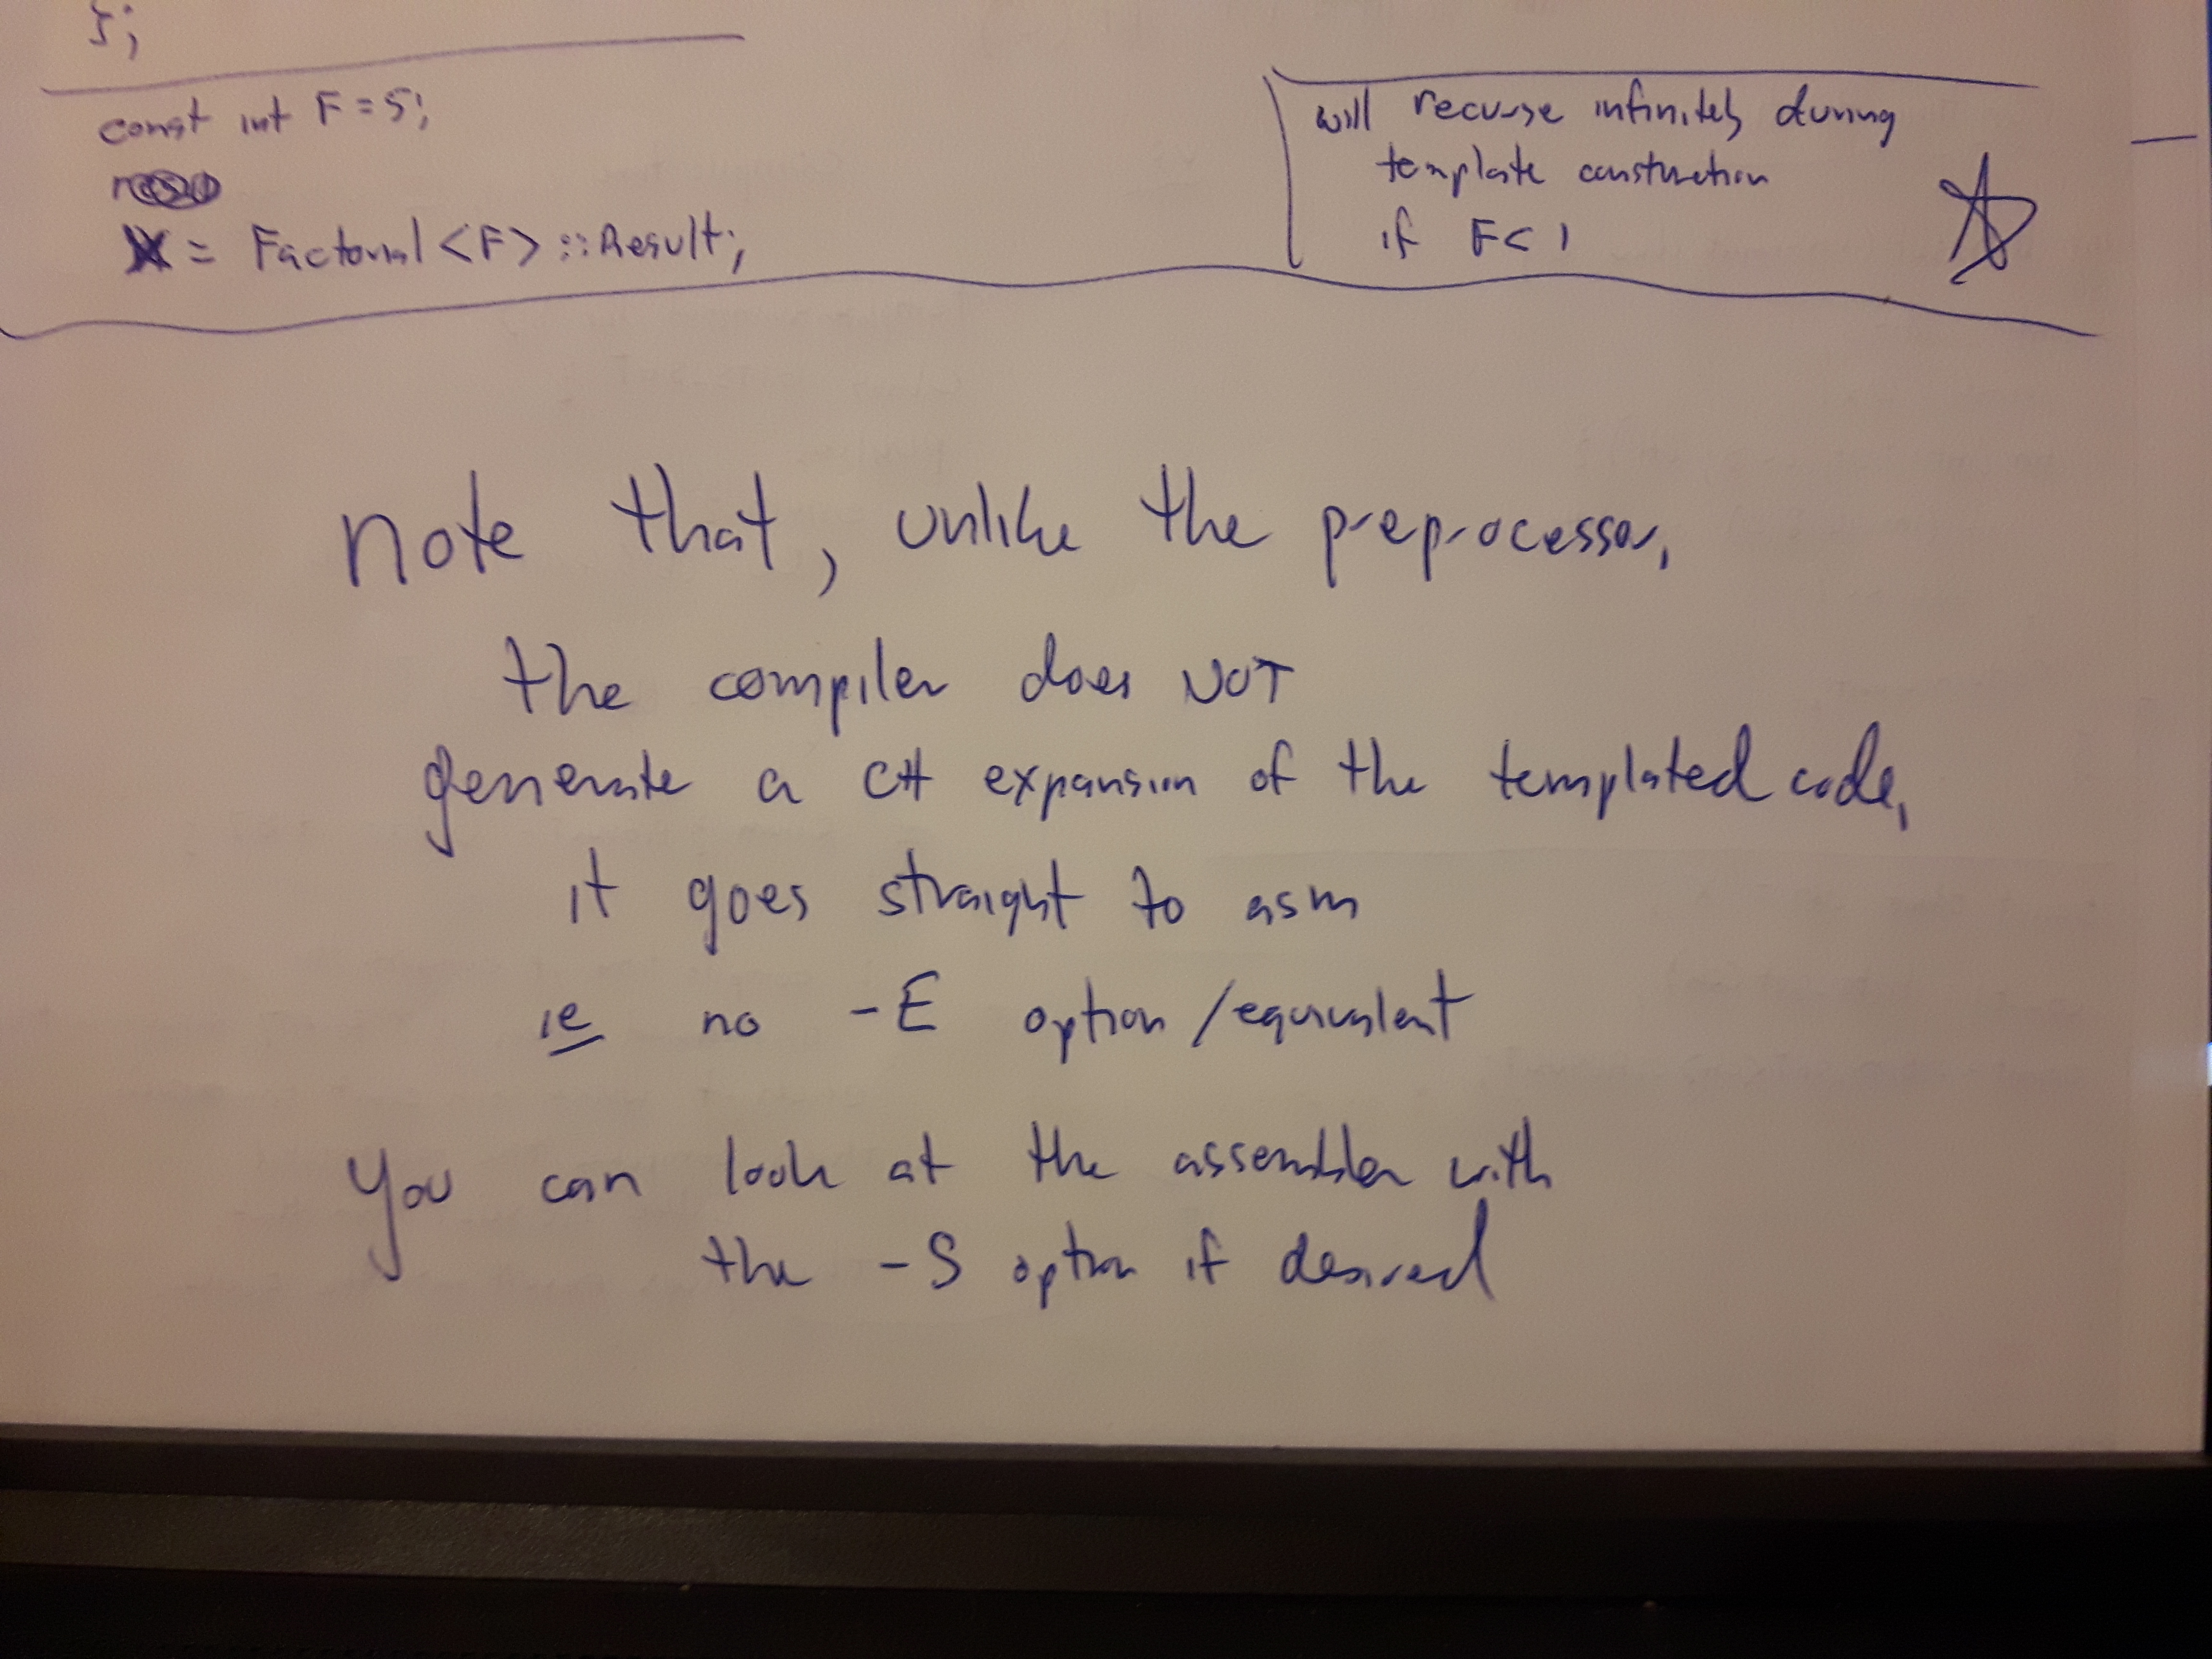 };
const int F = 5;
X = Factorial <F> :: Result;
will recurse infinitely during
template construction
if F < 1
note that, unlike the preprocessor,
the compiler does NOT
generate a C++ expansion of the templated code,
it goes straight to asm
ie no -E option/equivalent
You can look at the assembler with
the -S option if desired